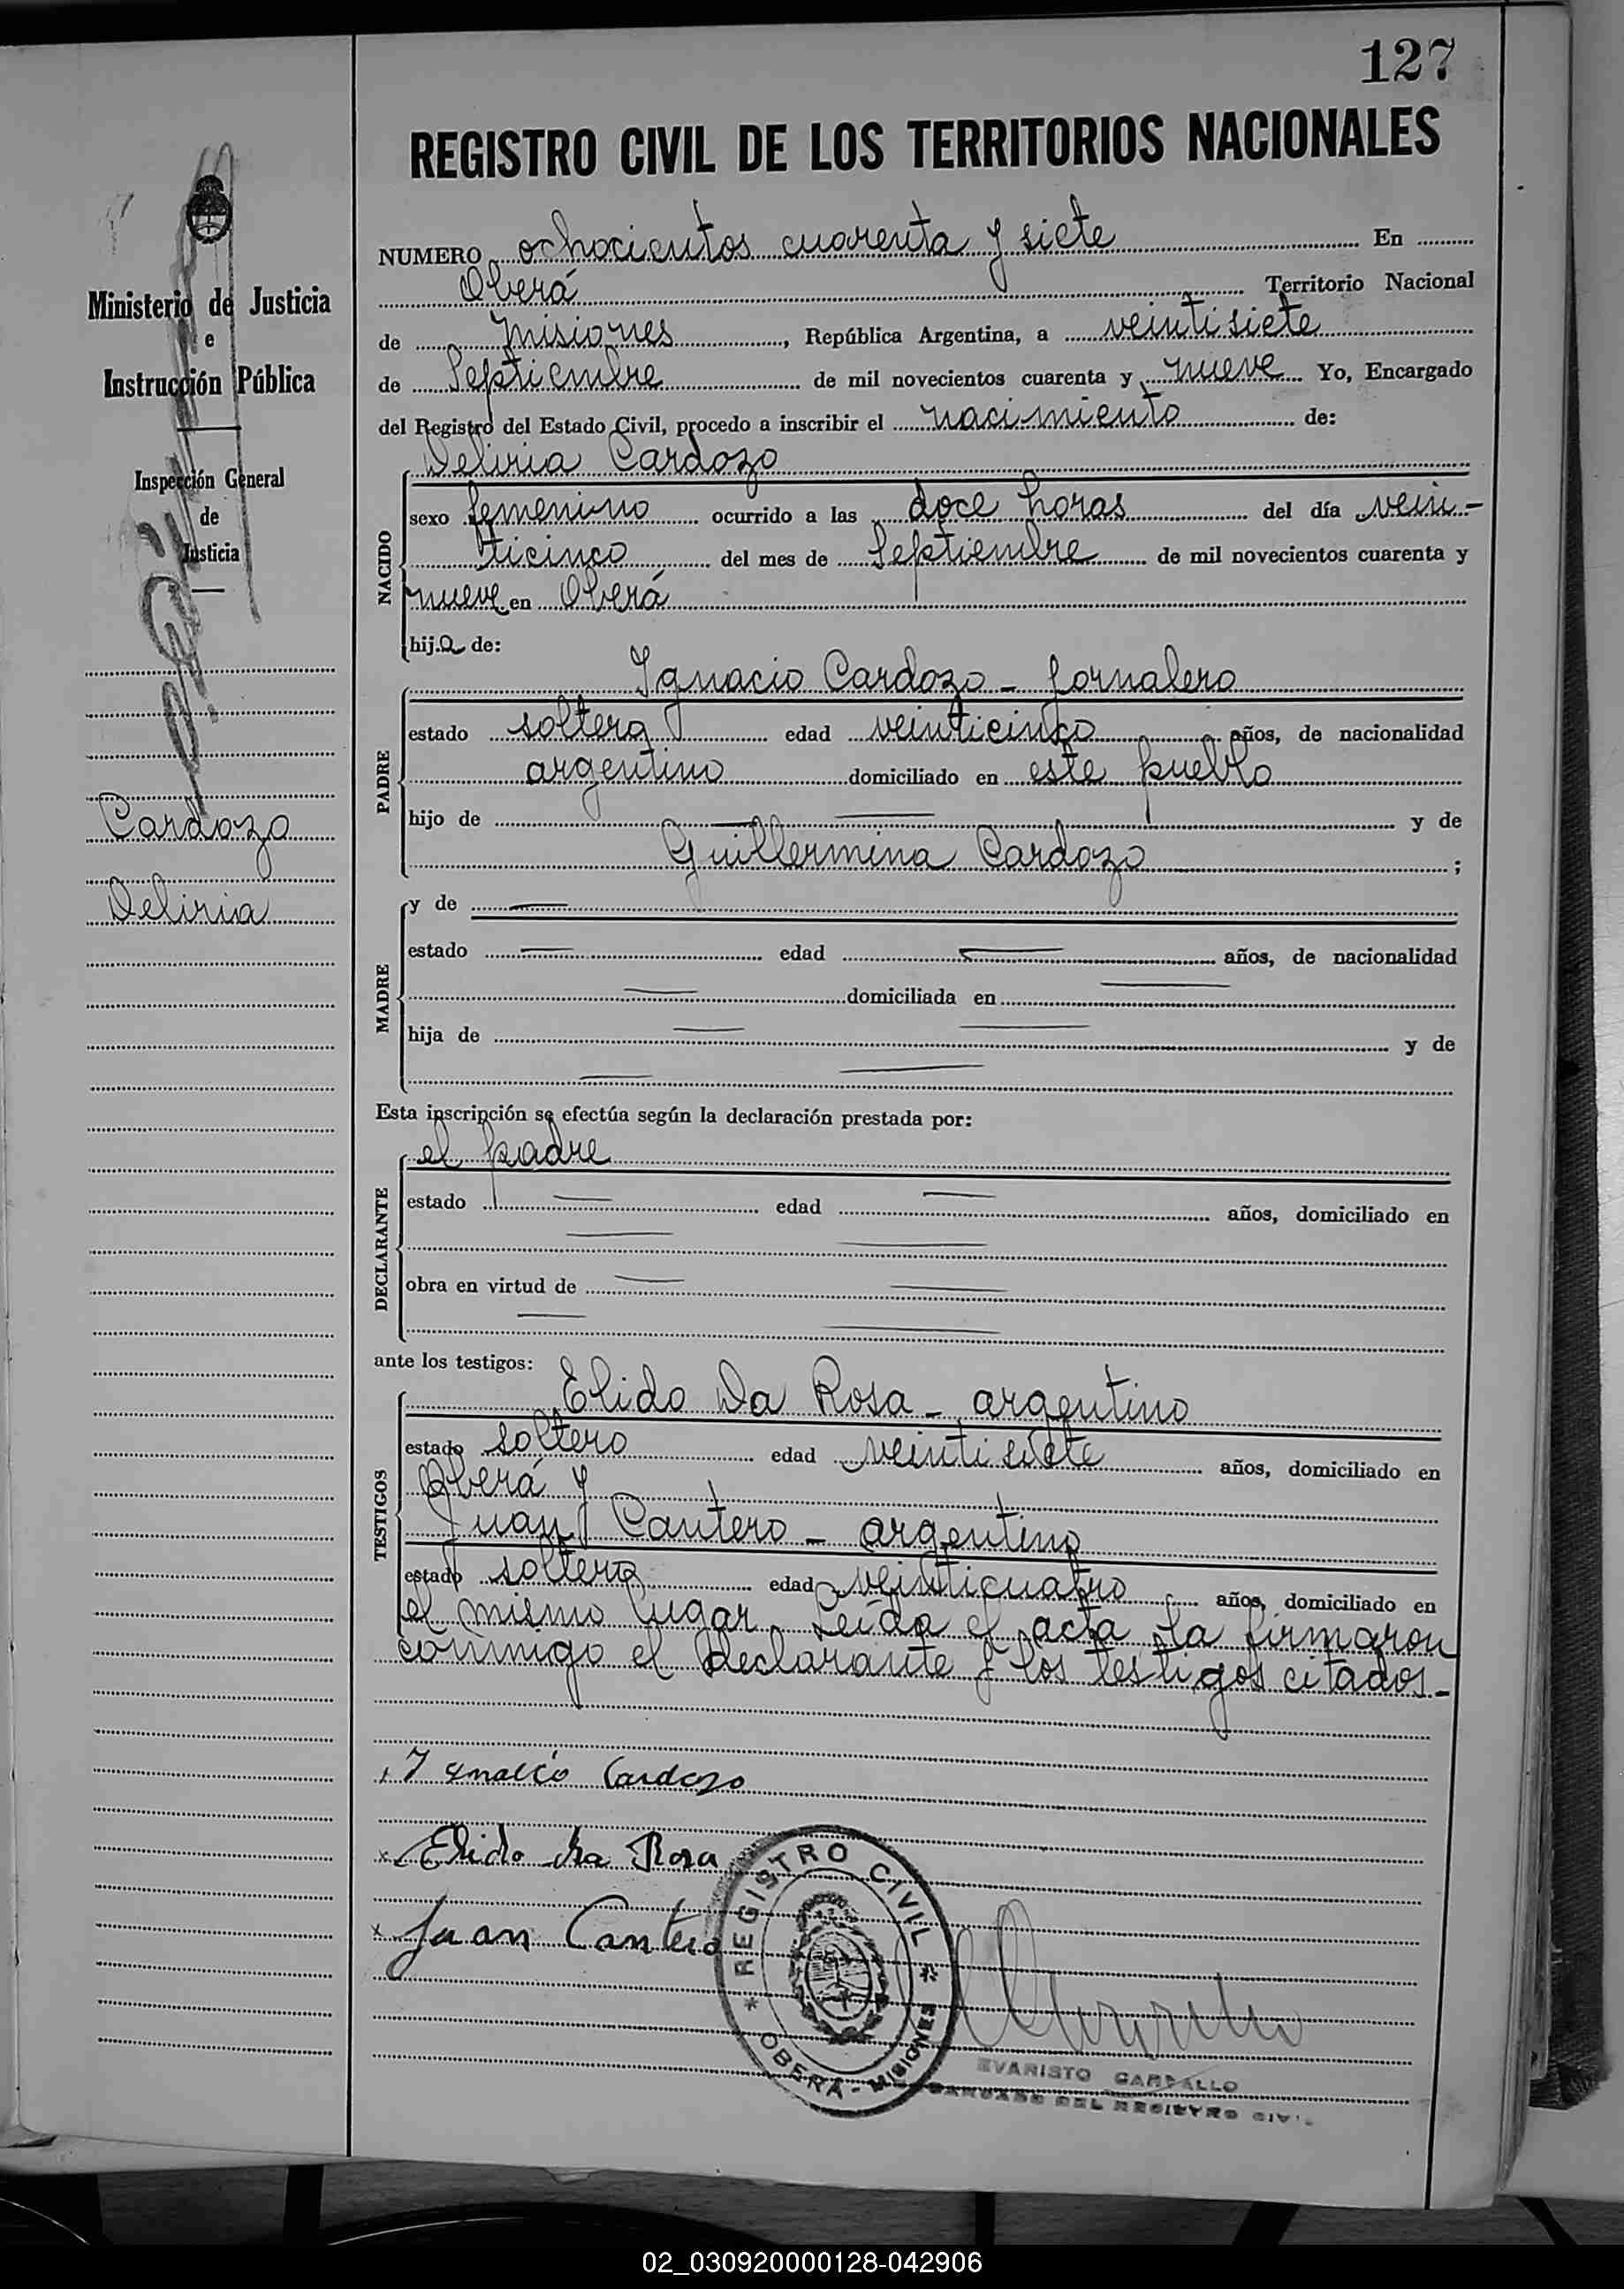 127
REGISTRO CIVIL DE LOS TERRITORIOS NACIONALES
NUMERO ochocientos cuarenta y siete En
Oberá Territorio Nacional
de Misiones, República Argentina, a veintisiete
de Septiembre de mil novecientos cuarenta y nueve Yo, Encargado
del Registro del Estado Civil, procedo a inscribir el nacimiento de:
Ministerio de Justicia
e
Instrucción Pública
Inspección General
de
Justicia
Cardozo
Deliria
NACIDO
Deliria Cardozo
sexo femenino ocurrido a las doce horas del día vein-
ticinco del mes de Septiembre de mil novecientos cuarenta y
nueve en Oberá
hija de:
PADRE
Ignacio Cardozo - jornalero
estado soltero edad veinticinco años, de nacionalidad
argentino domiciliado en este pueblo
hijo de y de
Guillermina Cardozo ;
MADRE
y de
estado edad años, de nacionalidad
domiciliada en
hija de y de
Esta inscripción se efectúa según la declaración prestada por:
DECLARANTE
el padre
estado edad años, domiciliado en
obra en virtud de
ante los testigos:
TESTIGOS
Elido Da Rosa - argentino
estado soltero edad veintisiete años, domiciliado en
Oberá y
Juan Cantero - argentino
estado soltero edad veinticuatro años, domiciliado en
el mismo lugar. Leída el acta la firmaron
conmigo el declarante y los testigos citados.-
Ignacio Cardozo
x Elido Da Rosa
x Juan Cantero
* REGISTRO CIVIL *
OBERÁ - MISIONES
EVARISTO CARBALLO
ENCARGADO DEL REGISTRO CIVIL
02_030920000128-042906